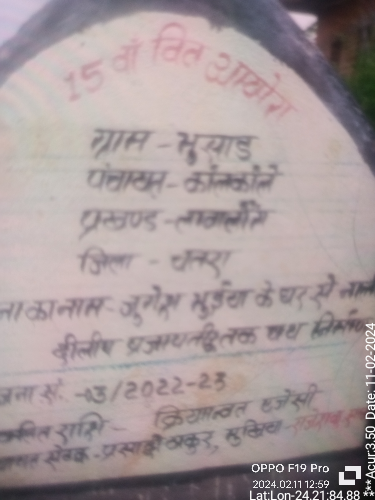 15 वाँ वित आयोग
ग्राम - भुसाड
पंचायत - कोलकोले
प्रखण्ड - लावालौंग
जिला - चतरा
ना का नाम - जुगेश भुईया के घर से
दीलीप प्रजापति तक पथ निर्माण
जना सं. - 03/2022-23
राशि - क्रियान्वत एजेंसी
सेवक - ठाकुर, मुखिया -
OPPO F19 Pro
2024.02.11 12:59
Lat:Lon-24.21:84.88
*** Acur:3.50 Date: 11-02-2024